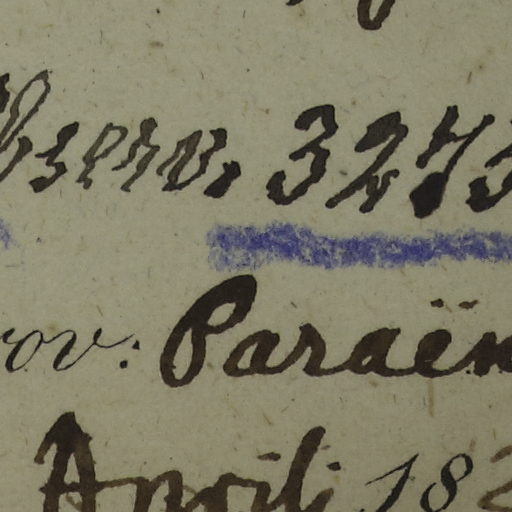 Observ. 3273
rov: Paraën
April 18